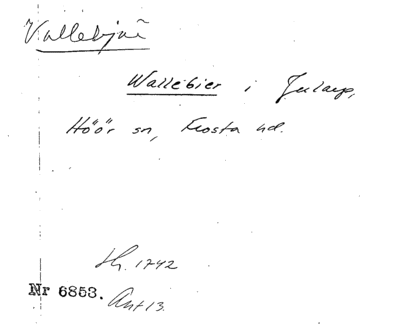 Vallebjär
Wallebier i Jularp,
Höör sn, Frosta hd.
Hh. 1742
Nr 6853. Ant 13.